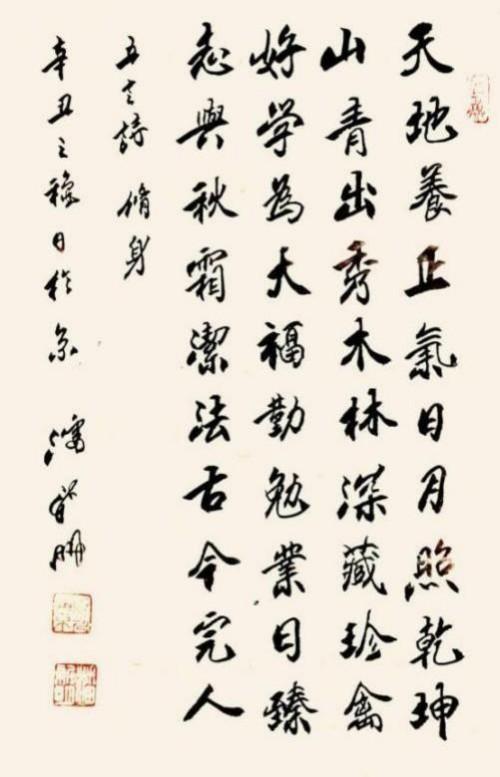 天地養正氣日月照乾坤
山青出秀木林深藏珍禽
好学為大福勤勉業日臻
志與秋霜潔法古今完人
五言詩 脩身
辛丑之穐日於京